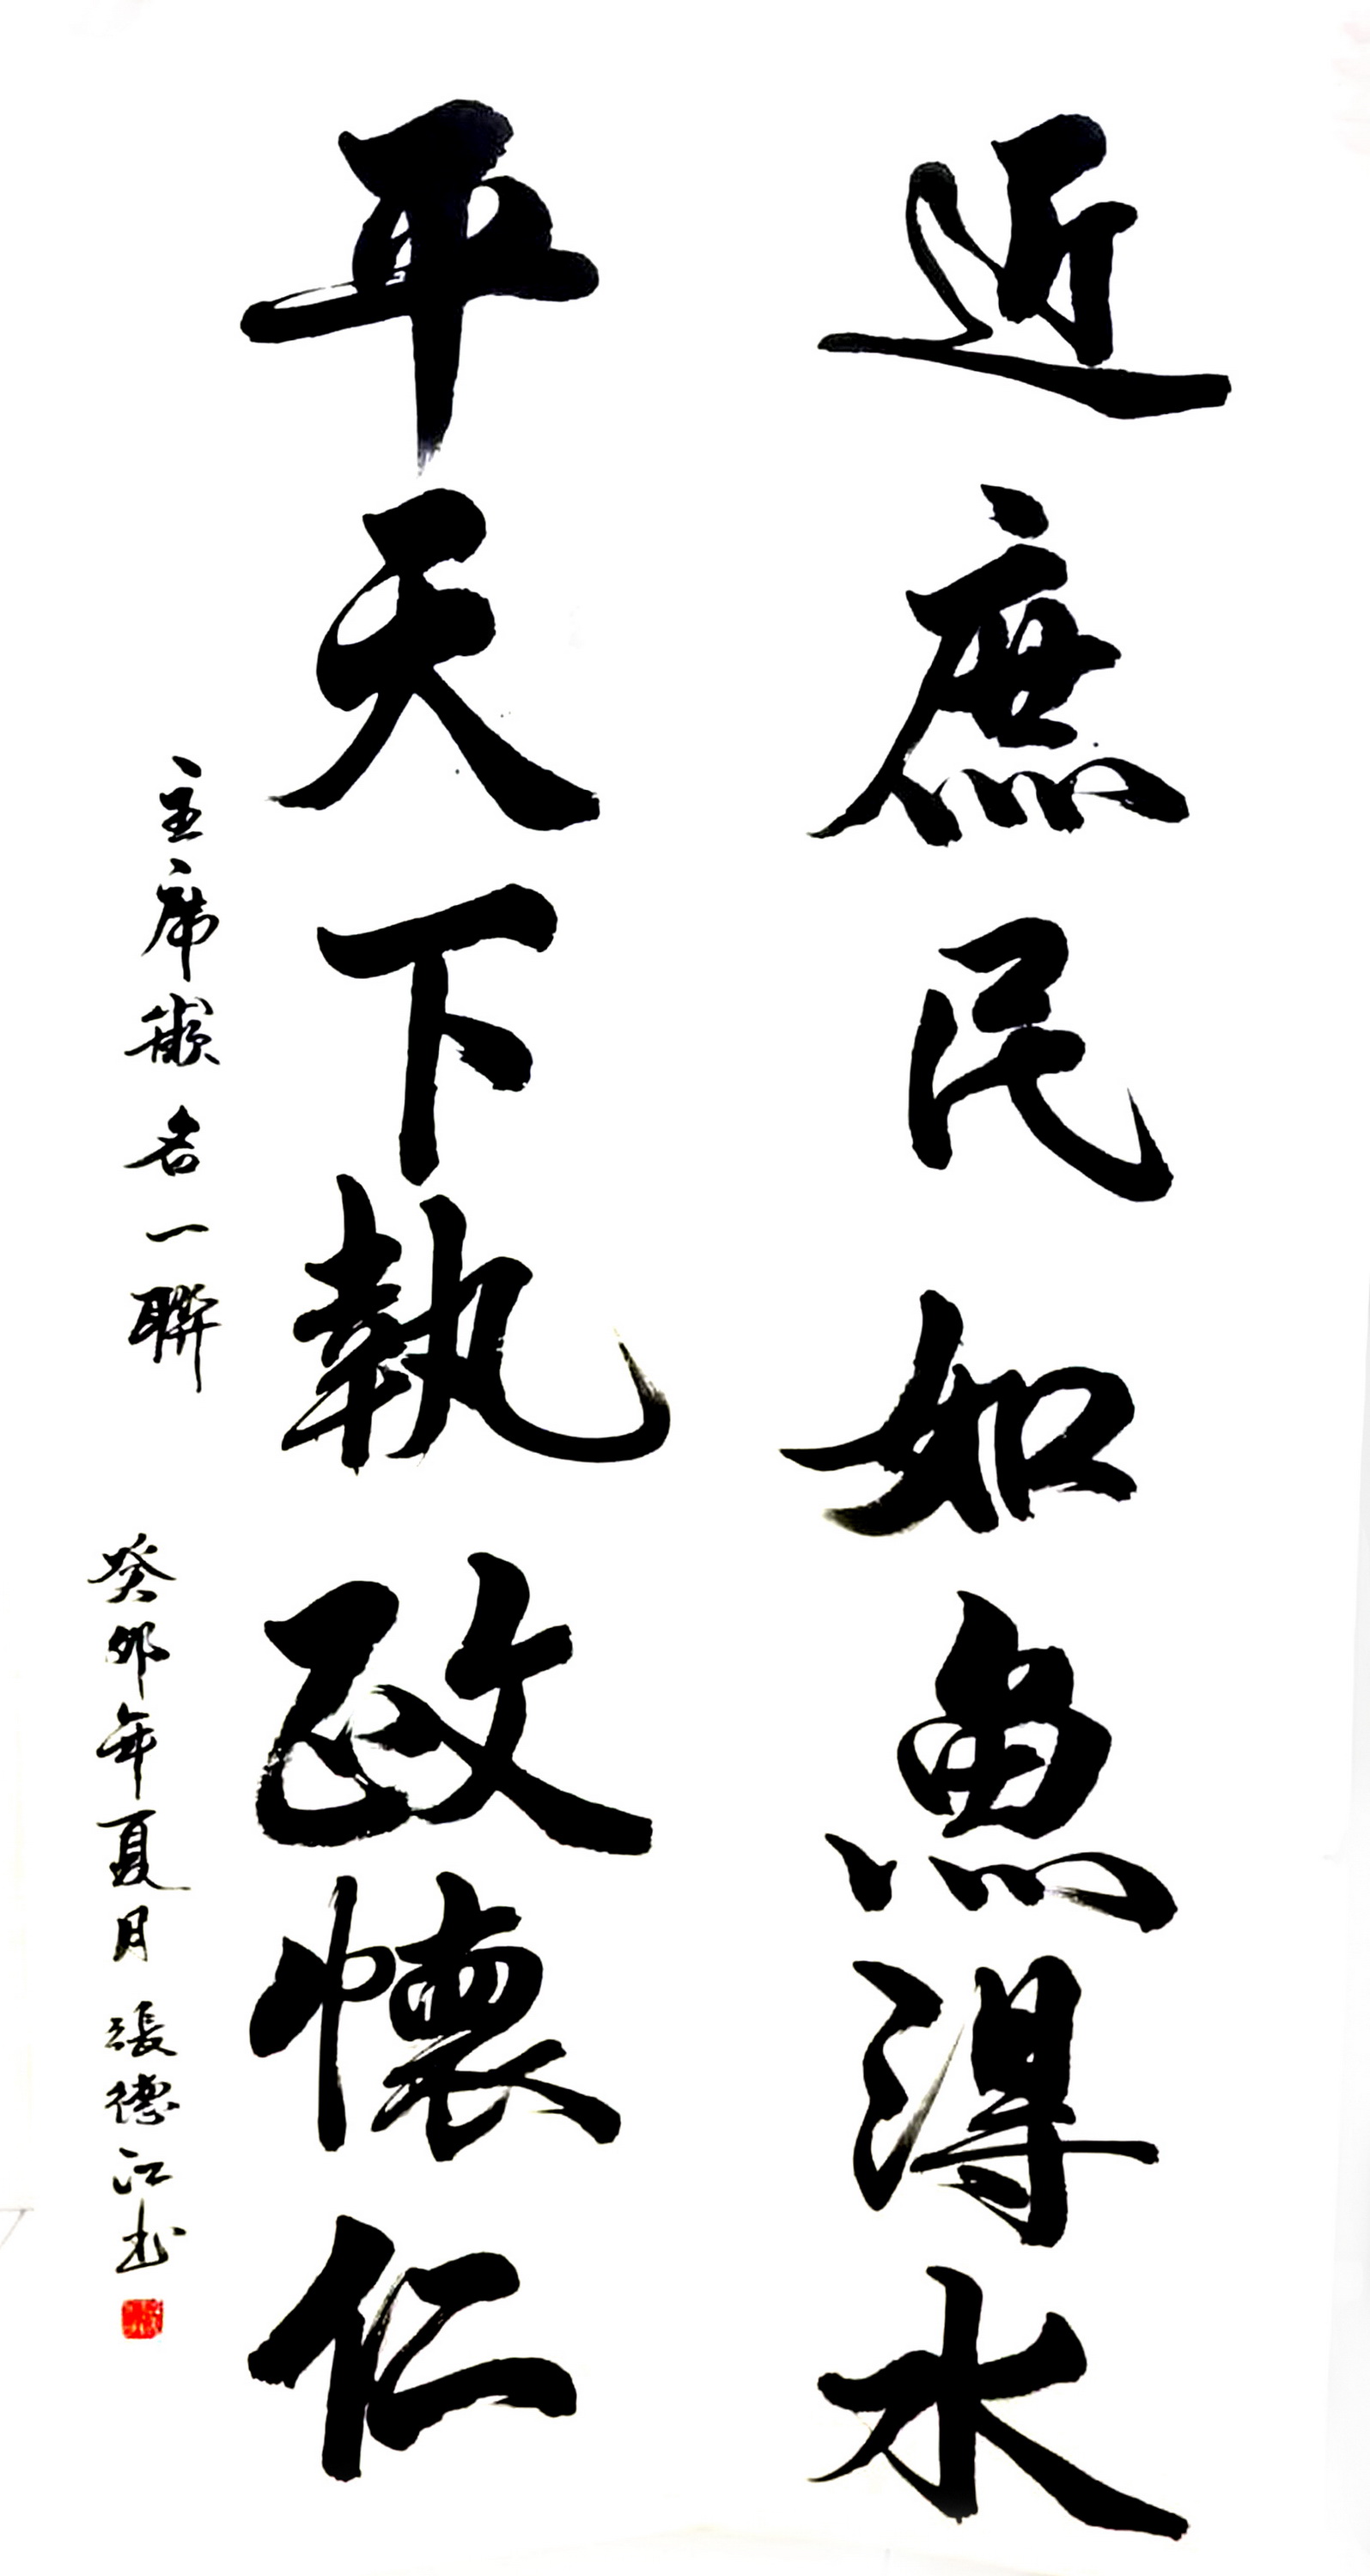 近庶民如魚得水
平天下執政懷仁
主席嵌名一聯
癸卯年夏月 張德江書